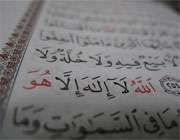 لَّا بَيْعٌ فِيهِ وَلَا خُلَّةٌ وَلَا
ٱللَّهُ لَآ إِلَٰهَ إِلَّا هُوَ
مَا فِي ٱلسَّمَٰوَٰتِ وَمَا